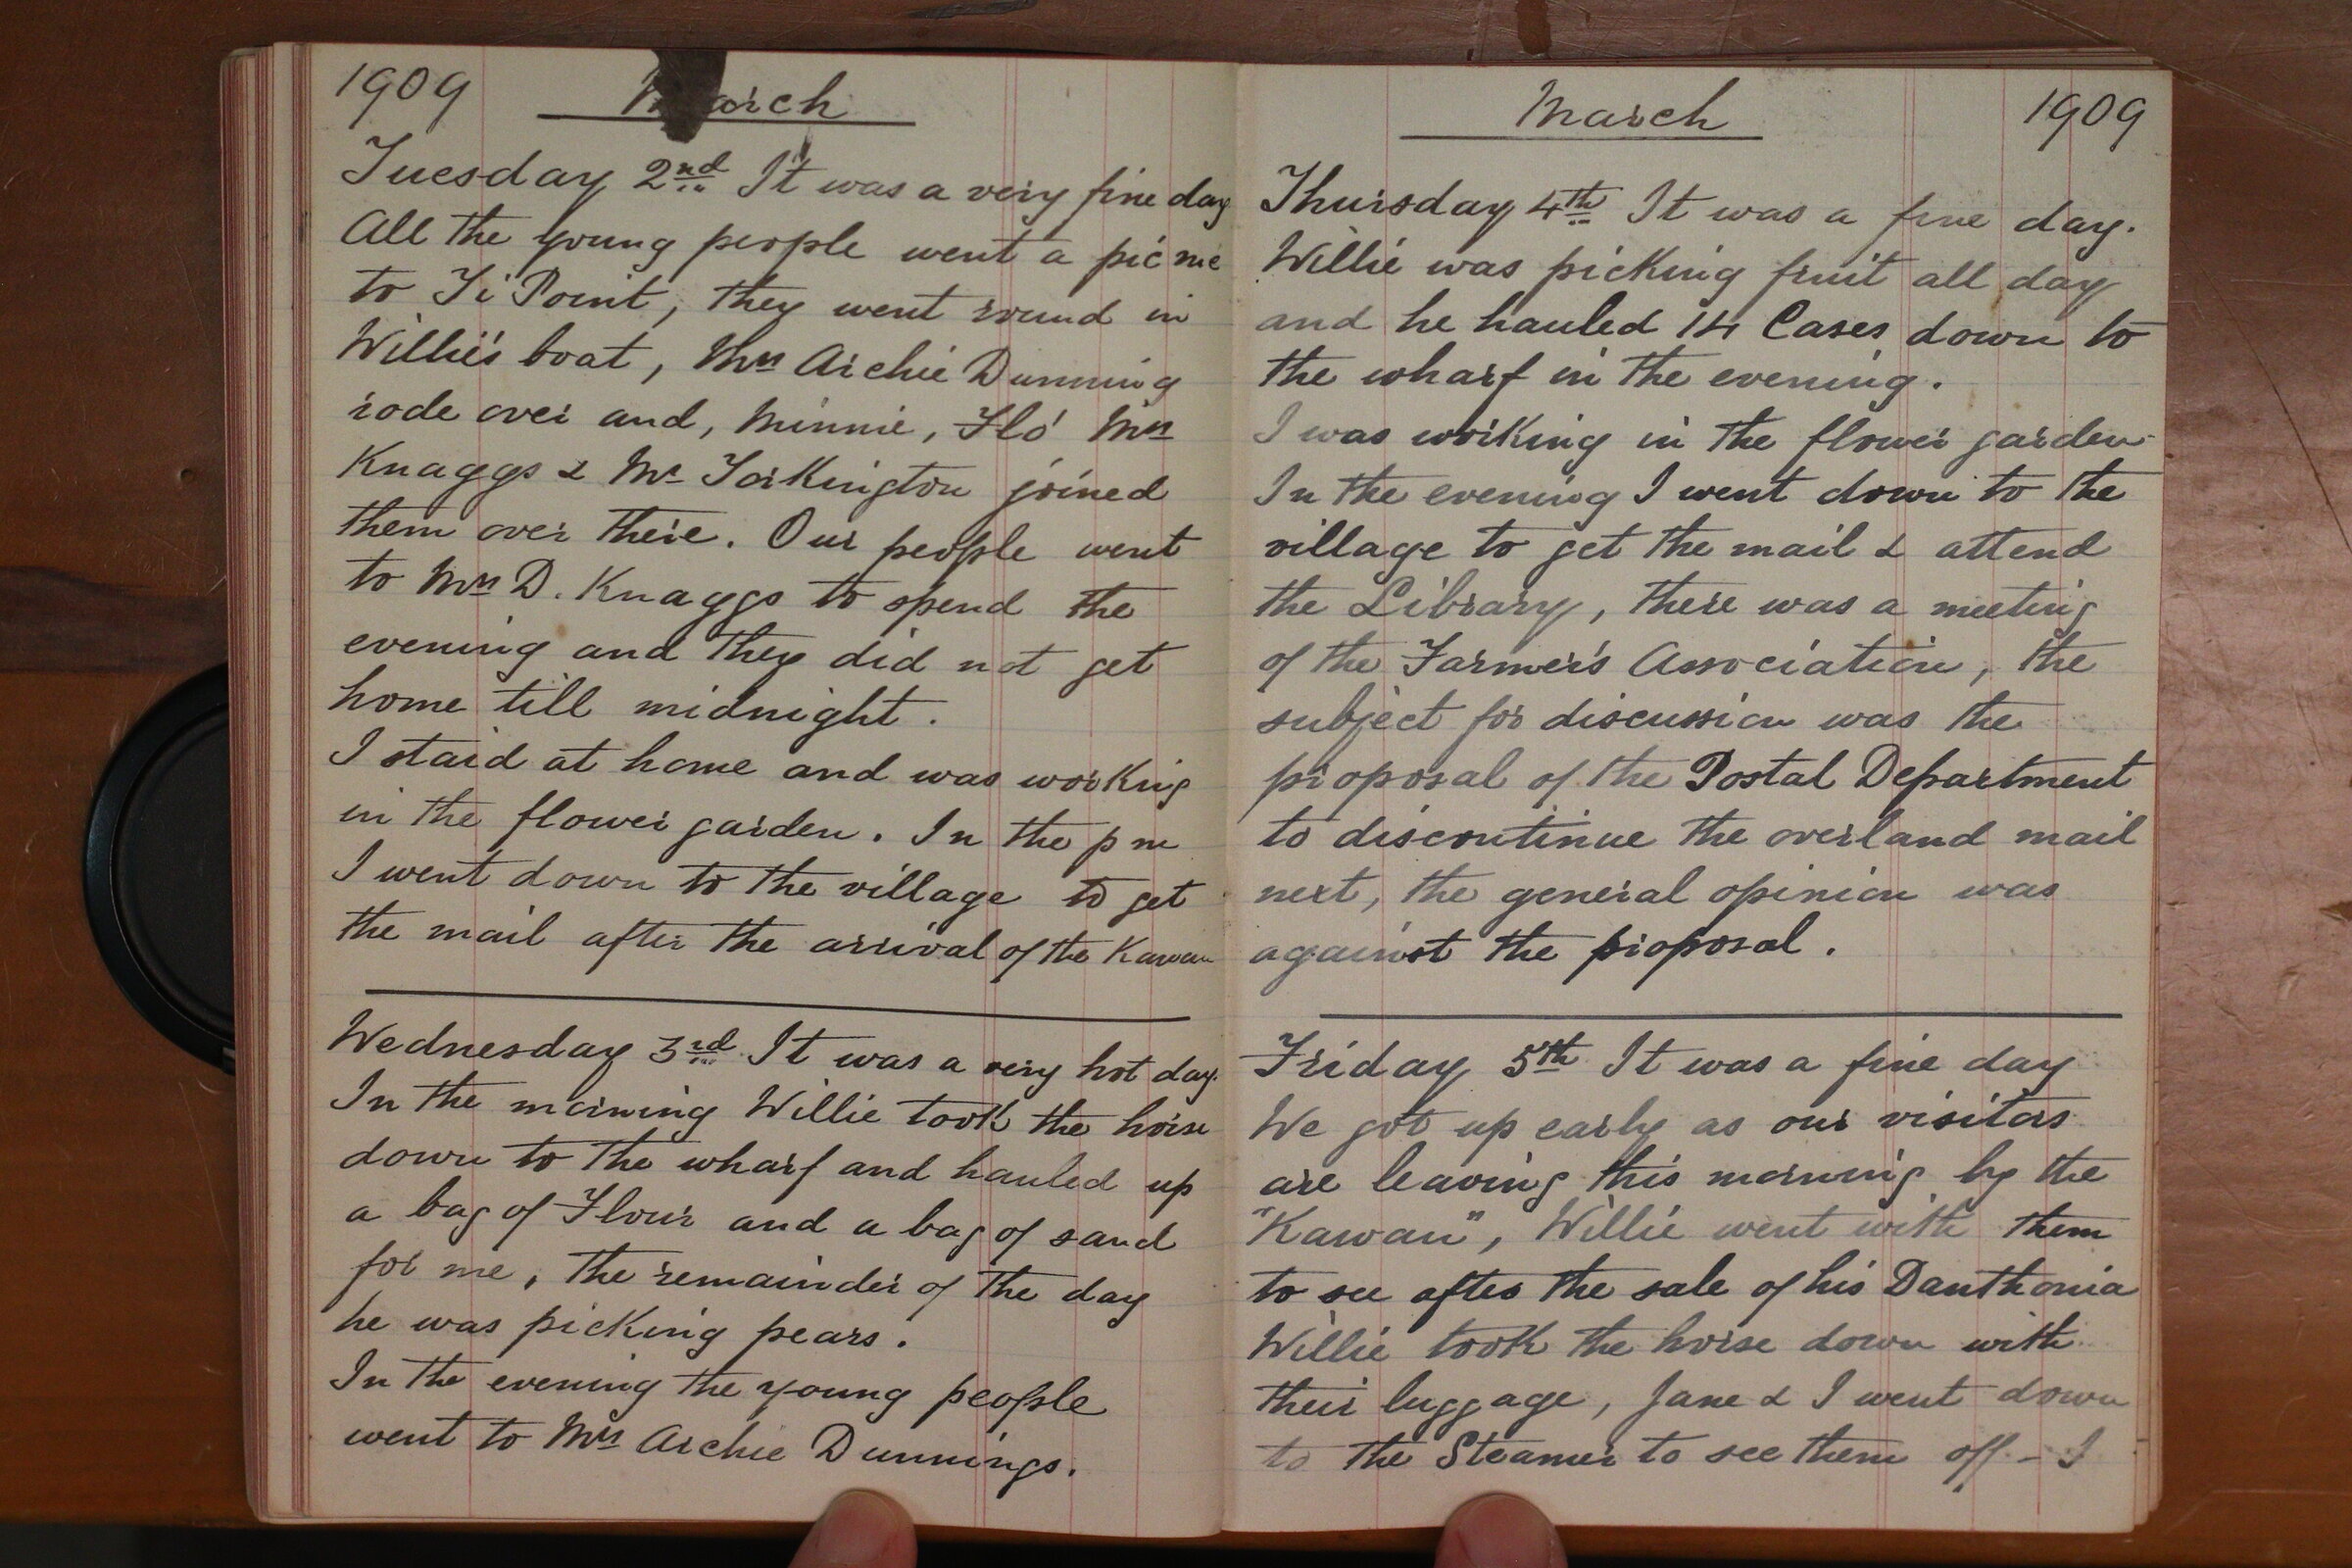 1909 March
Tuesday 2nd It was a very fine day
All the young people went a pic nic
to Ti Point, they went round in
Willie's boat, Mrs Archie Dunning
rode over and, Minnie, Flo' Mrs
Knaggs & Mr Torkington joined
them over there. Our people went
to Mrs D. Knaggs to spend the
evening and they did not get
home till midnight.
I staid at home and was working
in the flower garden. In the p m
I went down to the village to get
the mail after the arrival of the Kawau
Wednesday 3rd It was a very hot day.
In the morning Willie took the horse
down to the wharf and hauled up
a bag of Flour and a bag of sand
for me, the remainder of the day
he was picking pears.
In the evening the young people
went to Mrs Archie Dunnings.
March 1909
Thursday 4th It was a fine day.
Willie was picking fruit all day
and he hauled 14 Cases down to
the wharf in the evening.
I was working in the flower garden
In the evening I went down to the
village to get the mail & attend
the Library, there was a meeting
of the Farmer's Association, the
subject for discussion was the
proposal of the Postal Department
to discontinue the overland mail
next, the general opinion was
against the proposal.
Friday 5th It was a fine day
We got up early as our visitors
are leaving this morning by the
"Kawau", Willie went with them
to see after the sale of his Danthonia
Willie took the horse down with
their luggage, Jane & I went down
to the Steamer to see them off - I